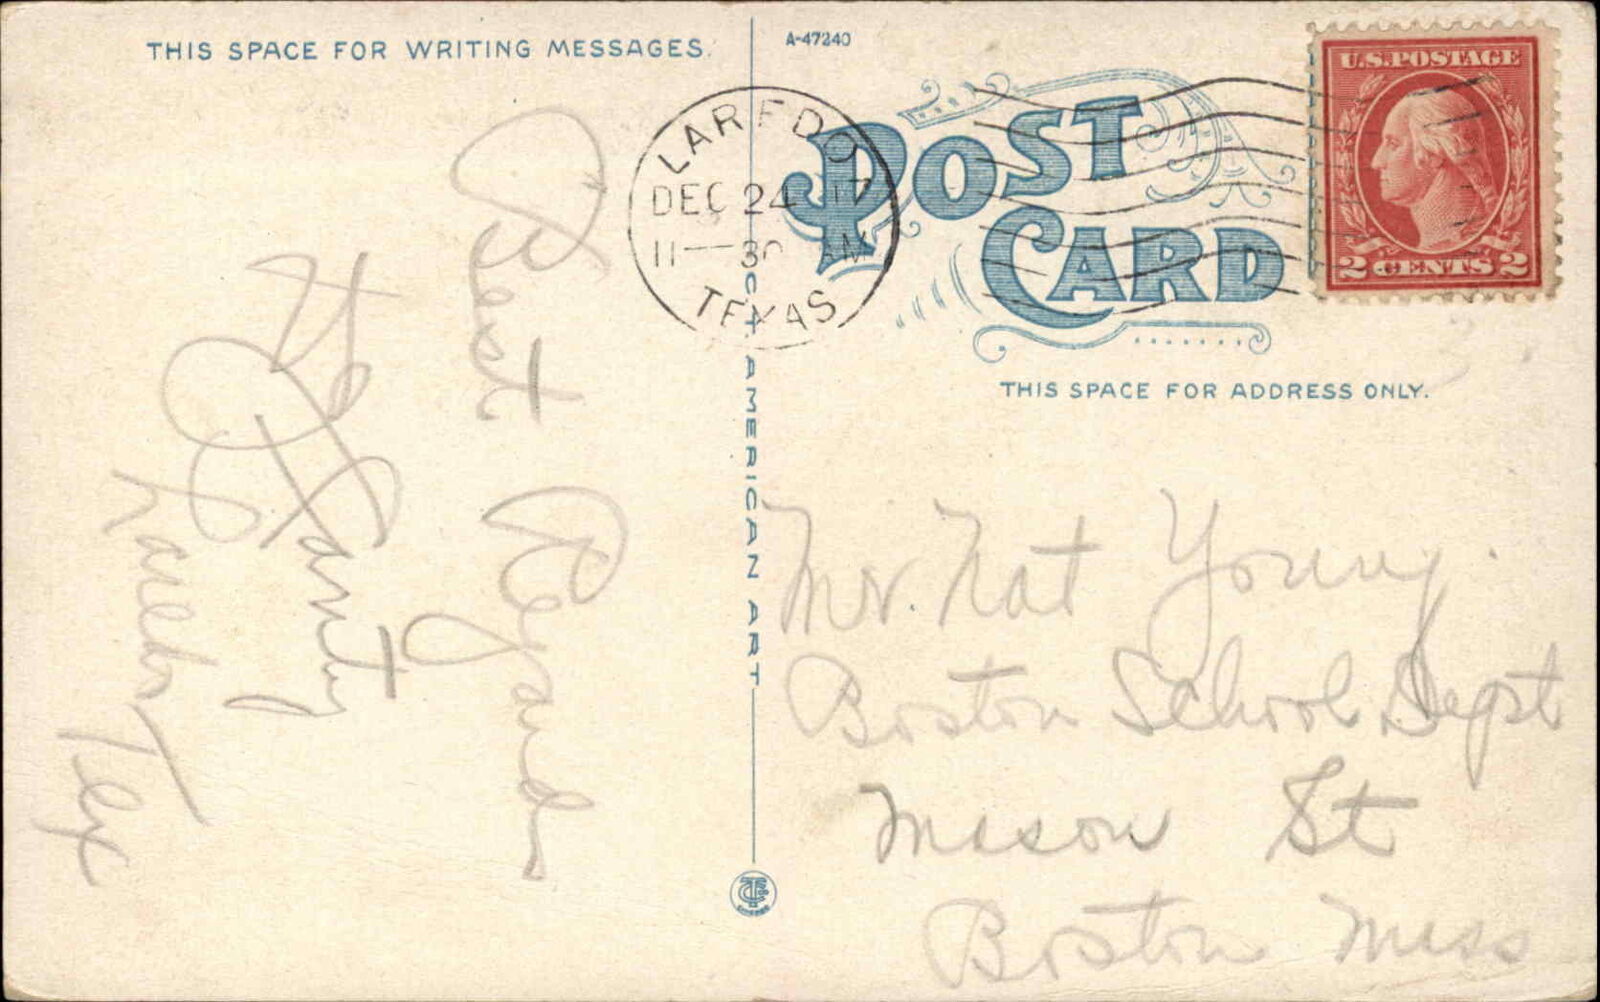 THIS SPACE FOR WRITING MESSAGES.
A-47240
POST CARD
LAREDO
DEC 24 17
11 — 30 AM
TEXAS
U.S. POSTAGE
2 CENTS 2
THIS SPACE FOR ADDRESS ONLY.
C.T. AMERICAN ART
Best Regards
Laredo Tex
Mr. Nat Young.
Boston School Dept
Mason St
Boston Mass